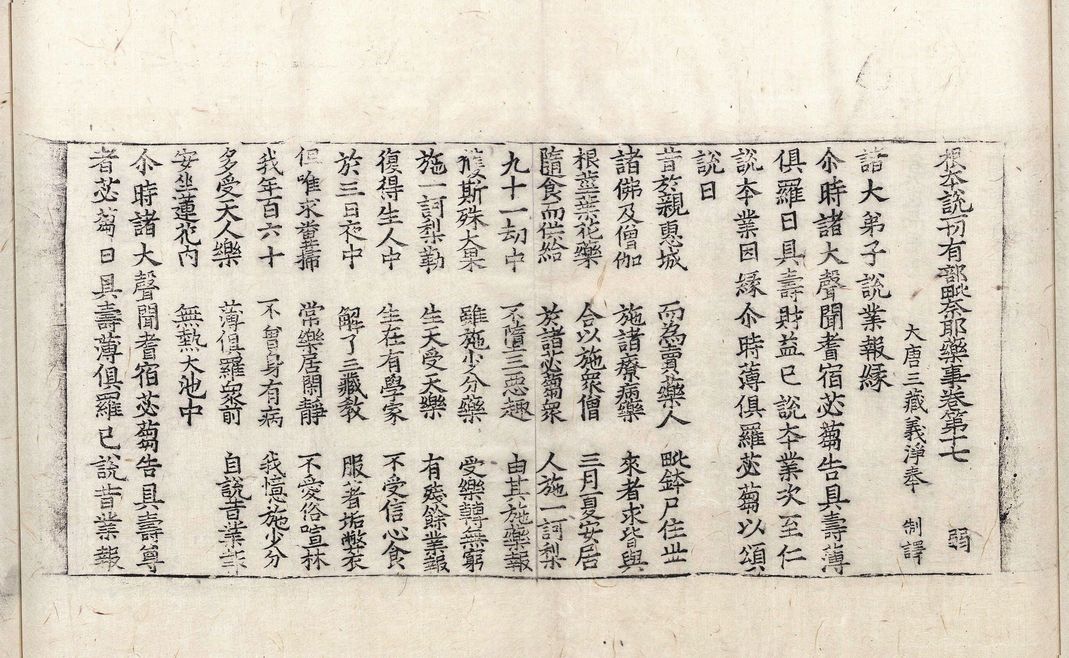 根本說一切有部毗奈耶藥事卷第十七 弱
大唐三藏義淨奉 制譯
諸大弟子說業報緣
尒時諸大聲聞耆宿苾蒭告具壽薄
俱羅曰具壽財益已說本業次至仁
說本業因緣尒時薄俱羅苾蒭以頌
說曰
昔於親惠城 而為賣藥人 毗鉢尸住世
諸佛及僧伽 施諸療病藥 來者求皆與
根莖葉花藥 合以施衆僧 三月夏安居
隨食而供給 於諸苾蒭衆 人施一訶梨
九十一劫中 不墮三惡趣 由其施藥報
獲斯殊大果 雖施少分藥 受樂轉無窮
施一訶梨勒 生天受天樂 有殘餘業報
復得生人中 生在有學家 不受信心食
於三日夜中 解了三藏教 服著垢弊衣
但唯求糞掃 常樂居閑靜 不愛俗喧林
我年百六十 不曾身有病 我憶施少分
多受天人樂 薄俱羅衆前 自說昔業
安坐蓮花內 無熱大池中
尒時諸大聲聞耆宿苾蒭告具壽尊
者苾蒭曰具壽薄俱羅已說昔業報